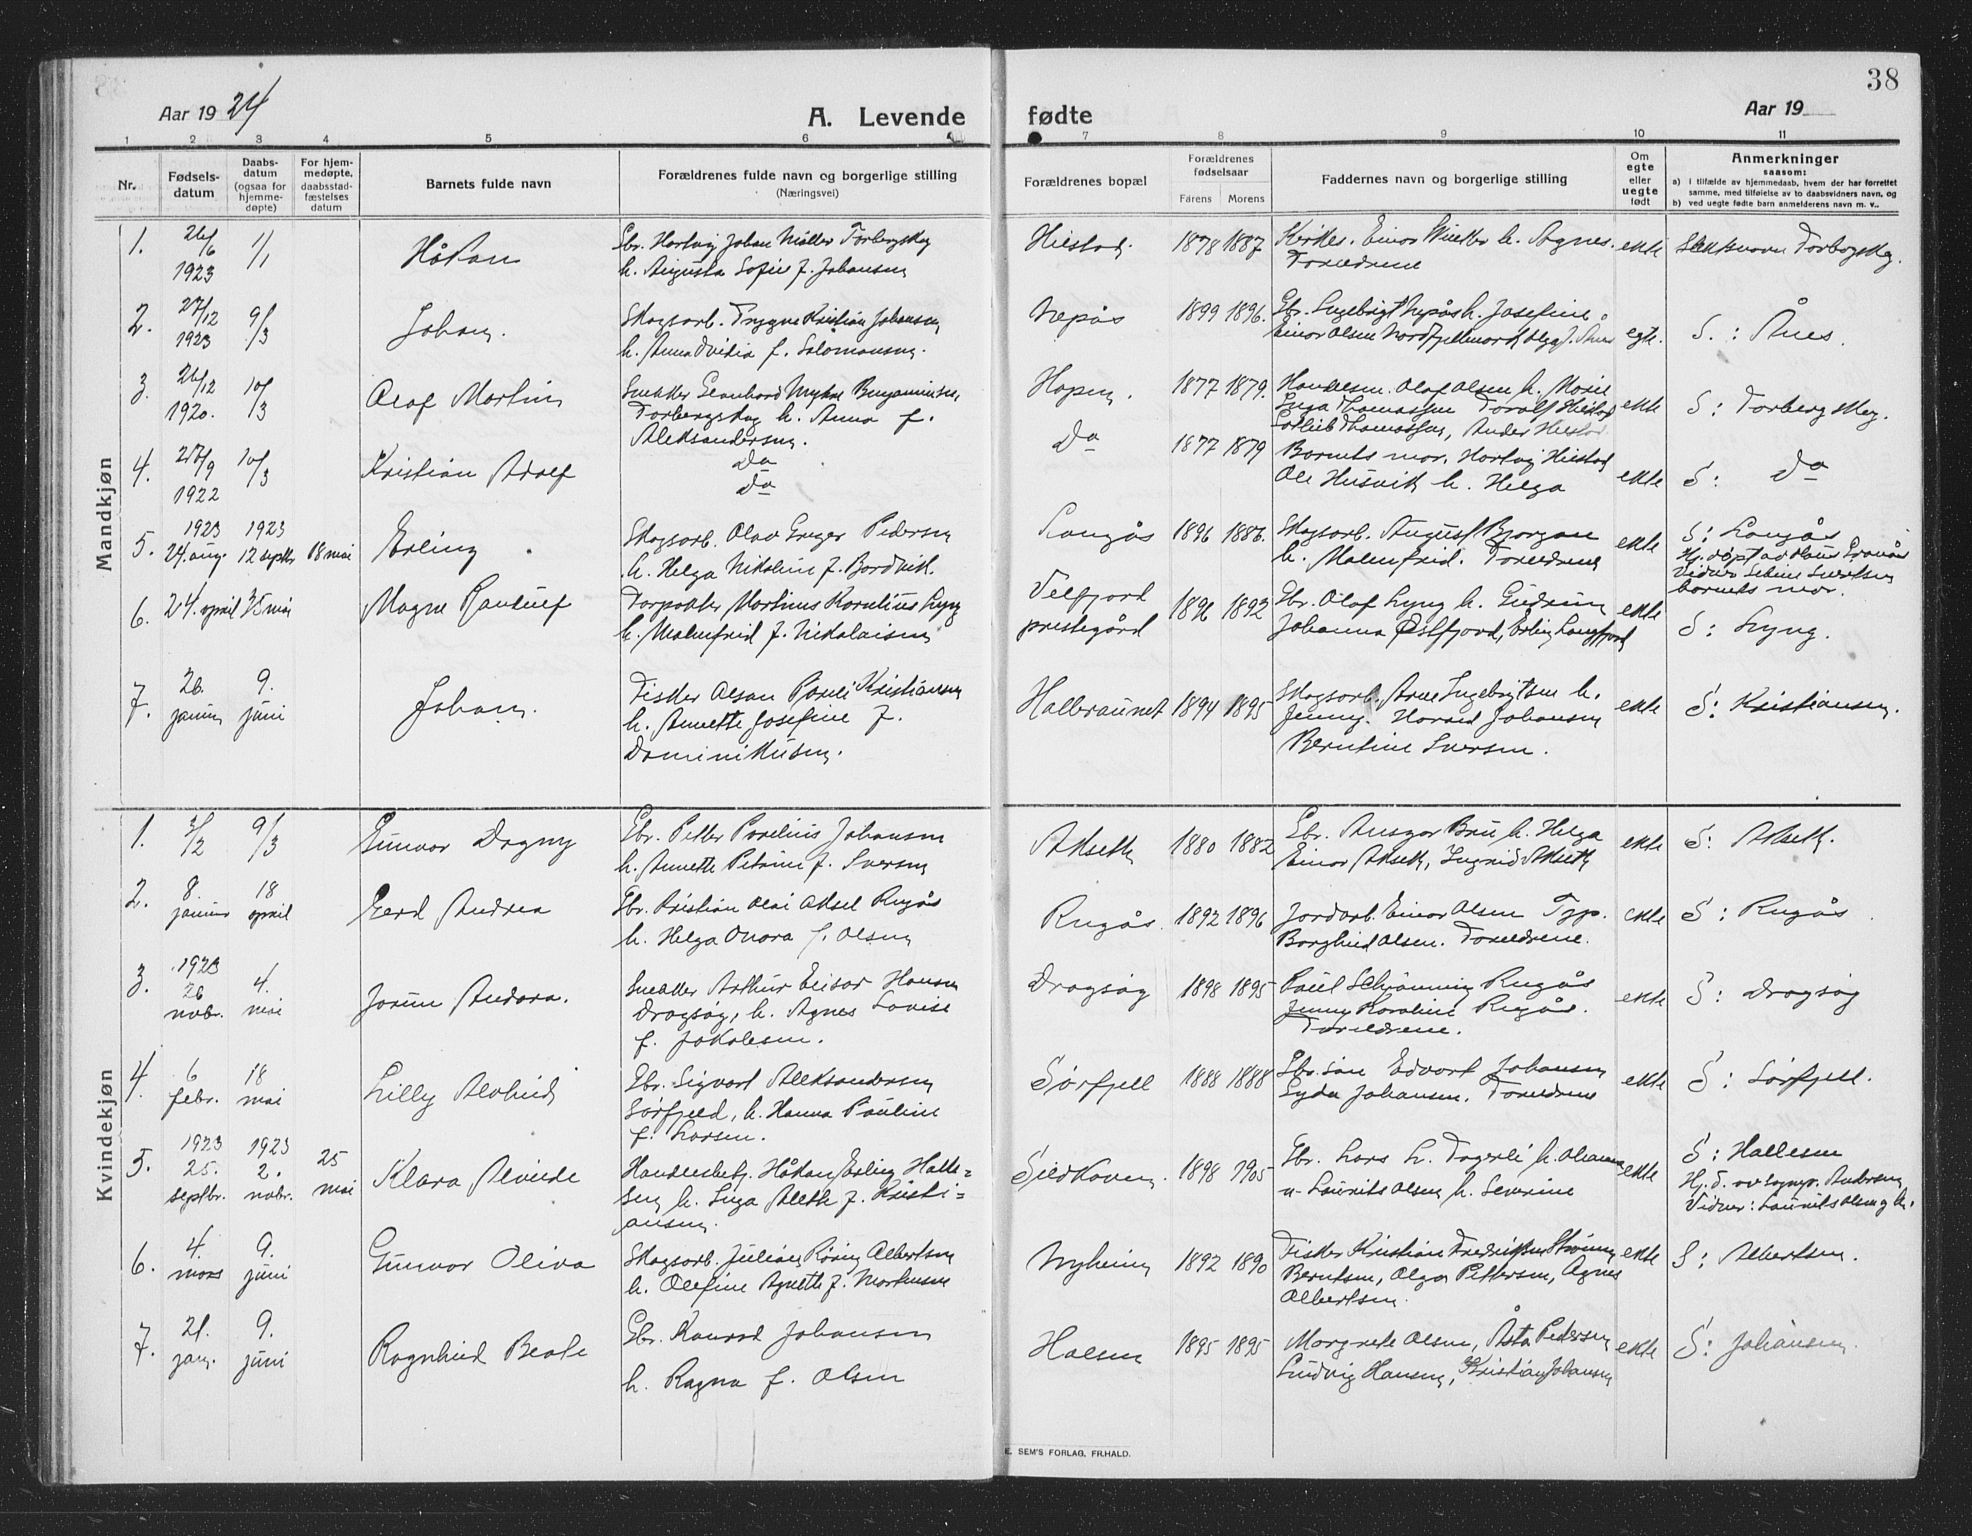 38
Aar 1924
A. Levende fødte
Aar 19
1 2 3 4 5 6 7 8 9 10 11
Nr.
Fødselsdatum
Daabsdatum (ogsaa for hjemmedøpte)
For hjemmedøpte, daabsstadfæstelses datum
Barnets fulde navn
Forældrenes fulde navn og borgerlige stilling (Næringsvei)
Forældrenes bopæl
Forældrenes fødselsaar
Farens Morens
Faddernes navn og borgerlige stilling
Om egte eller uegte født
Anmerkninger
saasom:
a) i tilfælde av hjemmedaab, hvem der har forrettet samme, med tilføielse av to daabsvidners navn, og
b) ved uegte fødte barn anmelderens navn m. v..
Mandkjøn
1. 26/6 1923 1/1 Håkon
Gbr. Hartvig Johan Møller Torbergskog
h. Augusta Sofie f. Johansen
Hilstad. 1878 1887.
Agnes.
Foreldrene
ekte
2. 27/12 1923 9/3 Johan.
Skogsarb. Trygve Kristian Johansen
h. Anna Ovidia f. Salomonsen.
Nepås 1899 1896.
Gbr. Ingebrigt Nepås h. Josefine
Einar Olsen
egte.
S.: Ånes.
3. 26/12 1920. 10/3 Olaf Martin
Snekker Leonhard Benjaminsen,
Torbergskog h. Anna f.
Aleksandersen.
Hopen. 1877 1879.
Olaf Olsen h.
Inga Thomassen Toralf Hilstad
ekte
S: Torbergskog.
4. 27/9 1922 10/3 Kristian Adolf
Do
Do
Do 1877 1879
Barnets mor. Hartvig Hilstad
Ole Husvik h. Helga
ekte
S: Do
5. 1923 24 aug. 1923 12 septbr 18 mai Erling
Skogsarb. Olav Greger Pedersen
h. Helga Nikoline f. Bordvik.
Langås 1896 1886.
Skogsarb. August Bjorgan
h. Malmfrid. Foreldrene
ekte
S: Langås
barnets mor.
6. 24. april 25 mai Magne Randulf
Martinus Kornelius Lyng
h. Malmfrid f. Nikolaisen
Velfjord
prestegård
1896 1892
Gbr. Olaf Lyng h. Gudrun
Johanna Østfjord, Erling Langfjord
ekte
S: Lyng.
7. 26. januar 9. juni Johan.
Fisker Alsan Pareli Kristiansen
h. Annette Josefine f.
Dominikusen.
Halbraunet 1894 1895
Skogsarb. Arne Ingebrigtsen h.
Jenny. Harald Johansen
Berntine Iversen.
ekte
S: Kristiansen.
Kvindekjøn
1. 3/2 9/3 Gunvor Dagny
Gbr. Petter Parelius Johansen
h. Annette Petrine f. Iversen
Akseth 1880 1882
Gbr. Ansgar Bru h. Helga
Einar Akseth, Ingrid Akseth
ekte
S: Akseth.
2. 8. januar 18 april Gerd Andrea
Gbr. Kristian Olai Aksel Rugås
h. Helga Onora f. Olsen
Rugås. 1892 1896
Jordarb. Einar Olsen
Borghild Olsen. Foreldrene.
ekte
S: Rugås
3. 1923 26 novbr. 4. mai Jorun Andora.
Snekker Arthur Elisar Hansen
Dragsøg, h. Agnes Lovise
f. Jakobsen.
Dragsøg 1898 1895
Paul Schjønning Rugås
Jenny Karoline Rugås.
Foreldrene.
ekte
S: Dragsøg
4. 6 febr. 18 mai Lilly Alvhild
Gbr. Sigvart Aleksandersen
Sørfjeld, h. Hanna Pauline
f. Larsen.
Sørfjell 1888 1888
Gbr.søn Edvart Johansen
Lyder Johansen. Foreldrene
ekte
S: Sørfjell.
5. 1923 25. septbr. 1923 2. novbr. 25 mai Klara Alvilde
Handelsbetj. Håkon Erling Halle-
sen h. Inga Alethe f. Kristi-
ansen.
Sildhaven. 1898 1905
Gbr. Lars L. Fagerli h.
Laurits Olsen h. Severine
ekte
S: Hallesen
Vidner: Laurits Olsen og h.
6. 4. mars 9. juni Gunvor Oliva
Skogsarb. Julian Røring Albertsen
h. Olefine Agnethe f. Mortensen
Nyheim 1892 1890
Fisker Kristian Fredriksen Strøm
Berntsen, Olga Pettersen, Agnes
Albertsen.
ekte
S: Albertsen.
7. 21. jan. 9. juni Ragnhild Beate
Gbr. Konrad Johansen
h. Ragna f. Olsen
Halsen 1895 1895
Margrete Olsen, Åsta Pedersen
Ludvig Hansen, Kristian Johansen
ekte
S: Johansen.
E. SEM'S FORLAG, FR.HALD.